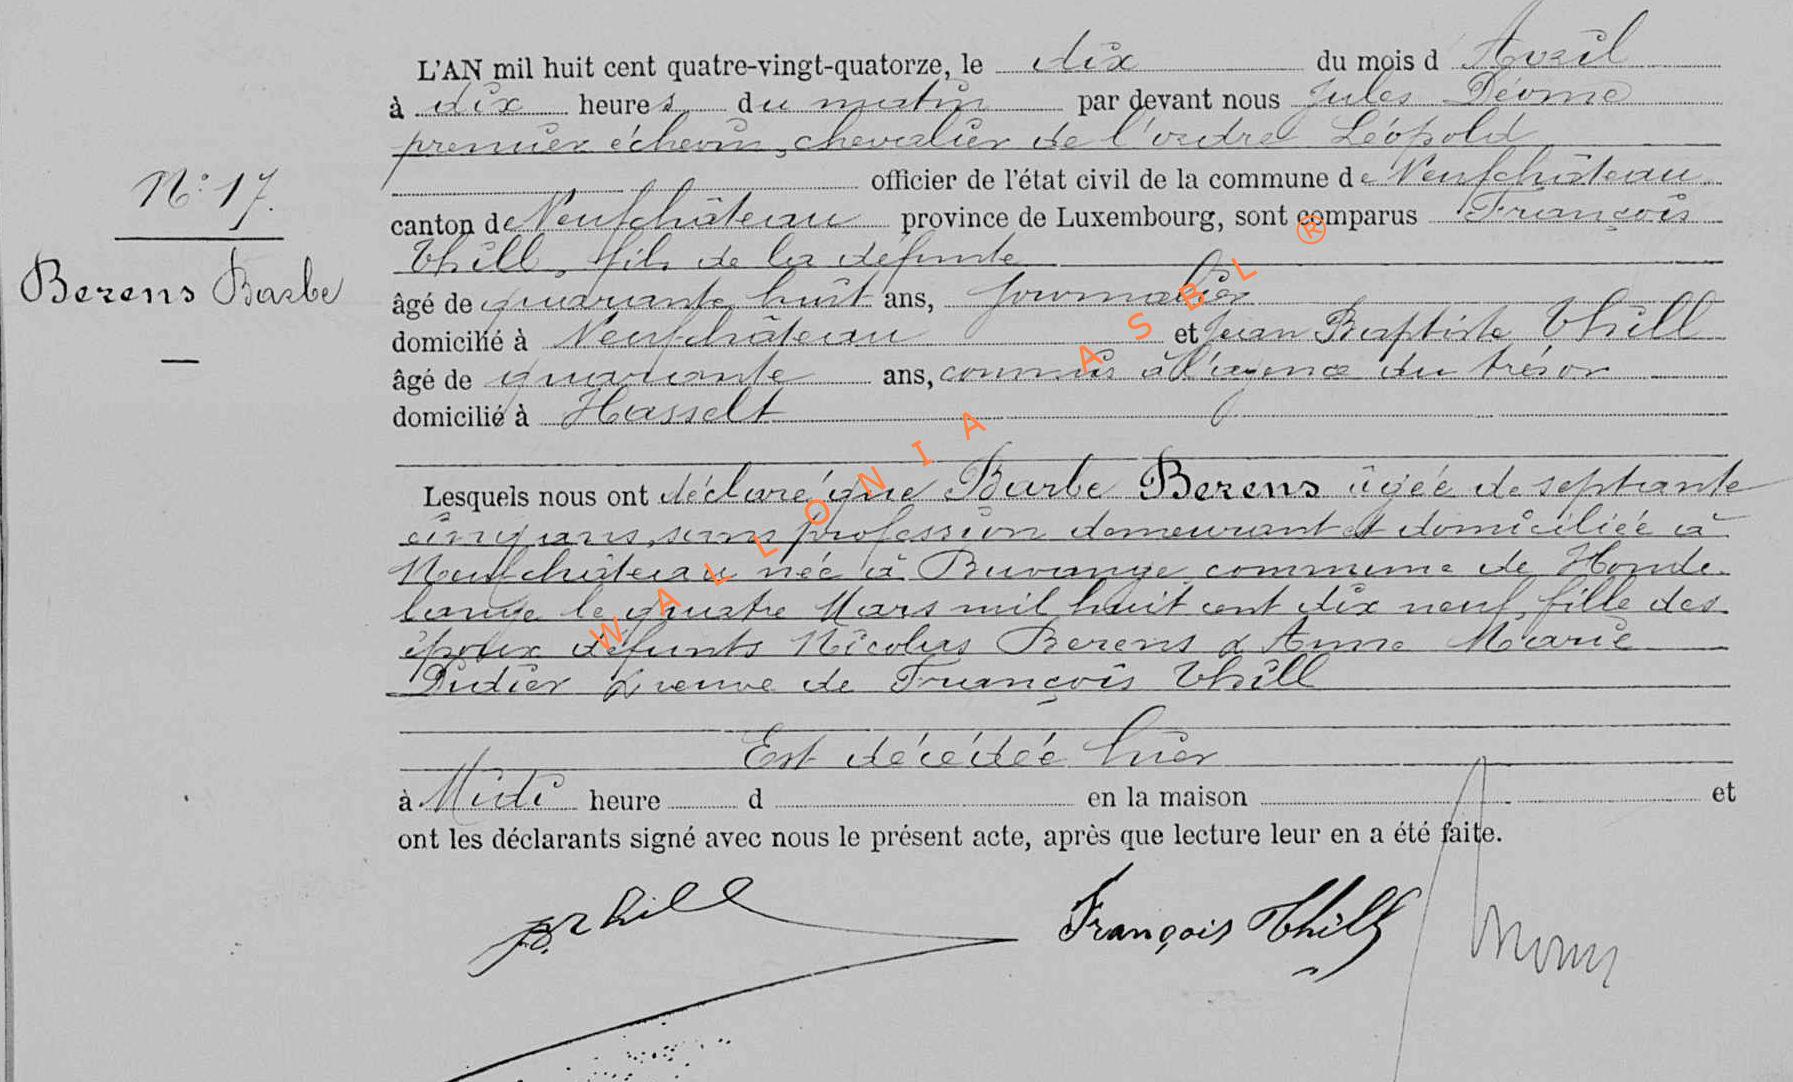 N° 17.
Berens Barbe
L'AN mil huit cent quatre-vingt-quatorze, le dix du mois d Avril
à dix heures du matin par devant nous Jules Déome
premier échevin, chevalier de l'ordre Léopold
officier de l'état civil de la commune de Neufchâteau
canton de Neufchâteau province de Luxembourg, sont comparus François
Thill, fils de la défunte
âgé de quarante huit ans, journalier
domicilié à Neufchâteau et Jean Baptiste Thill
âgé de quarante ans, commis à l'agence du trésor
domicilié à Hasselt
Lesquels nous ont déclaré que Barbe Berens âgée de septante
cinq ans, sans profession demeurant et domiciliée à
Neufchâteau née à Buvange commune de Honde-
lange le quatre Mars mil huit cent dix neuf, fille des
époux défunts Nicolas Berens & Anne Marie
Didier & veuve de François Thill
Est décédée hier
à Midi heure d en la maison et
ont les déclarants signé avec nous le présent acte, après que lecture leur en a été faite.
JBThill François Thill
WALLONIA ASBL ®